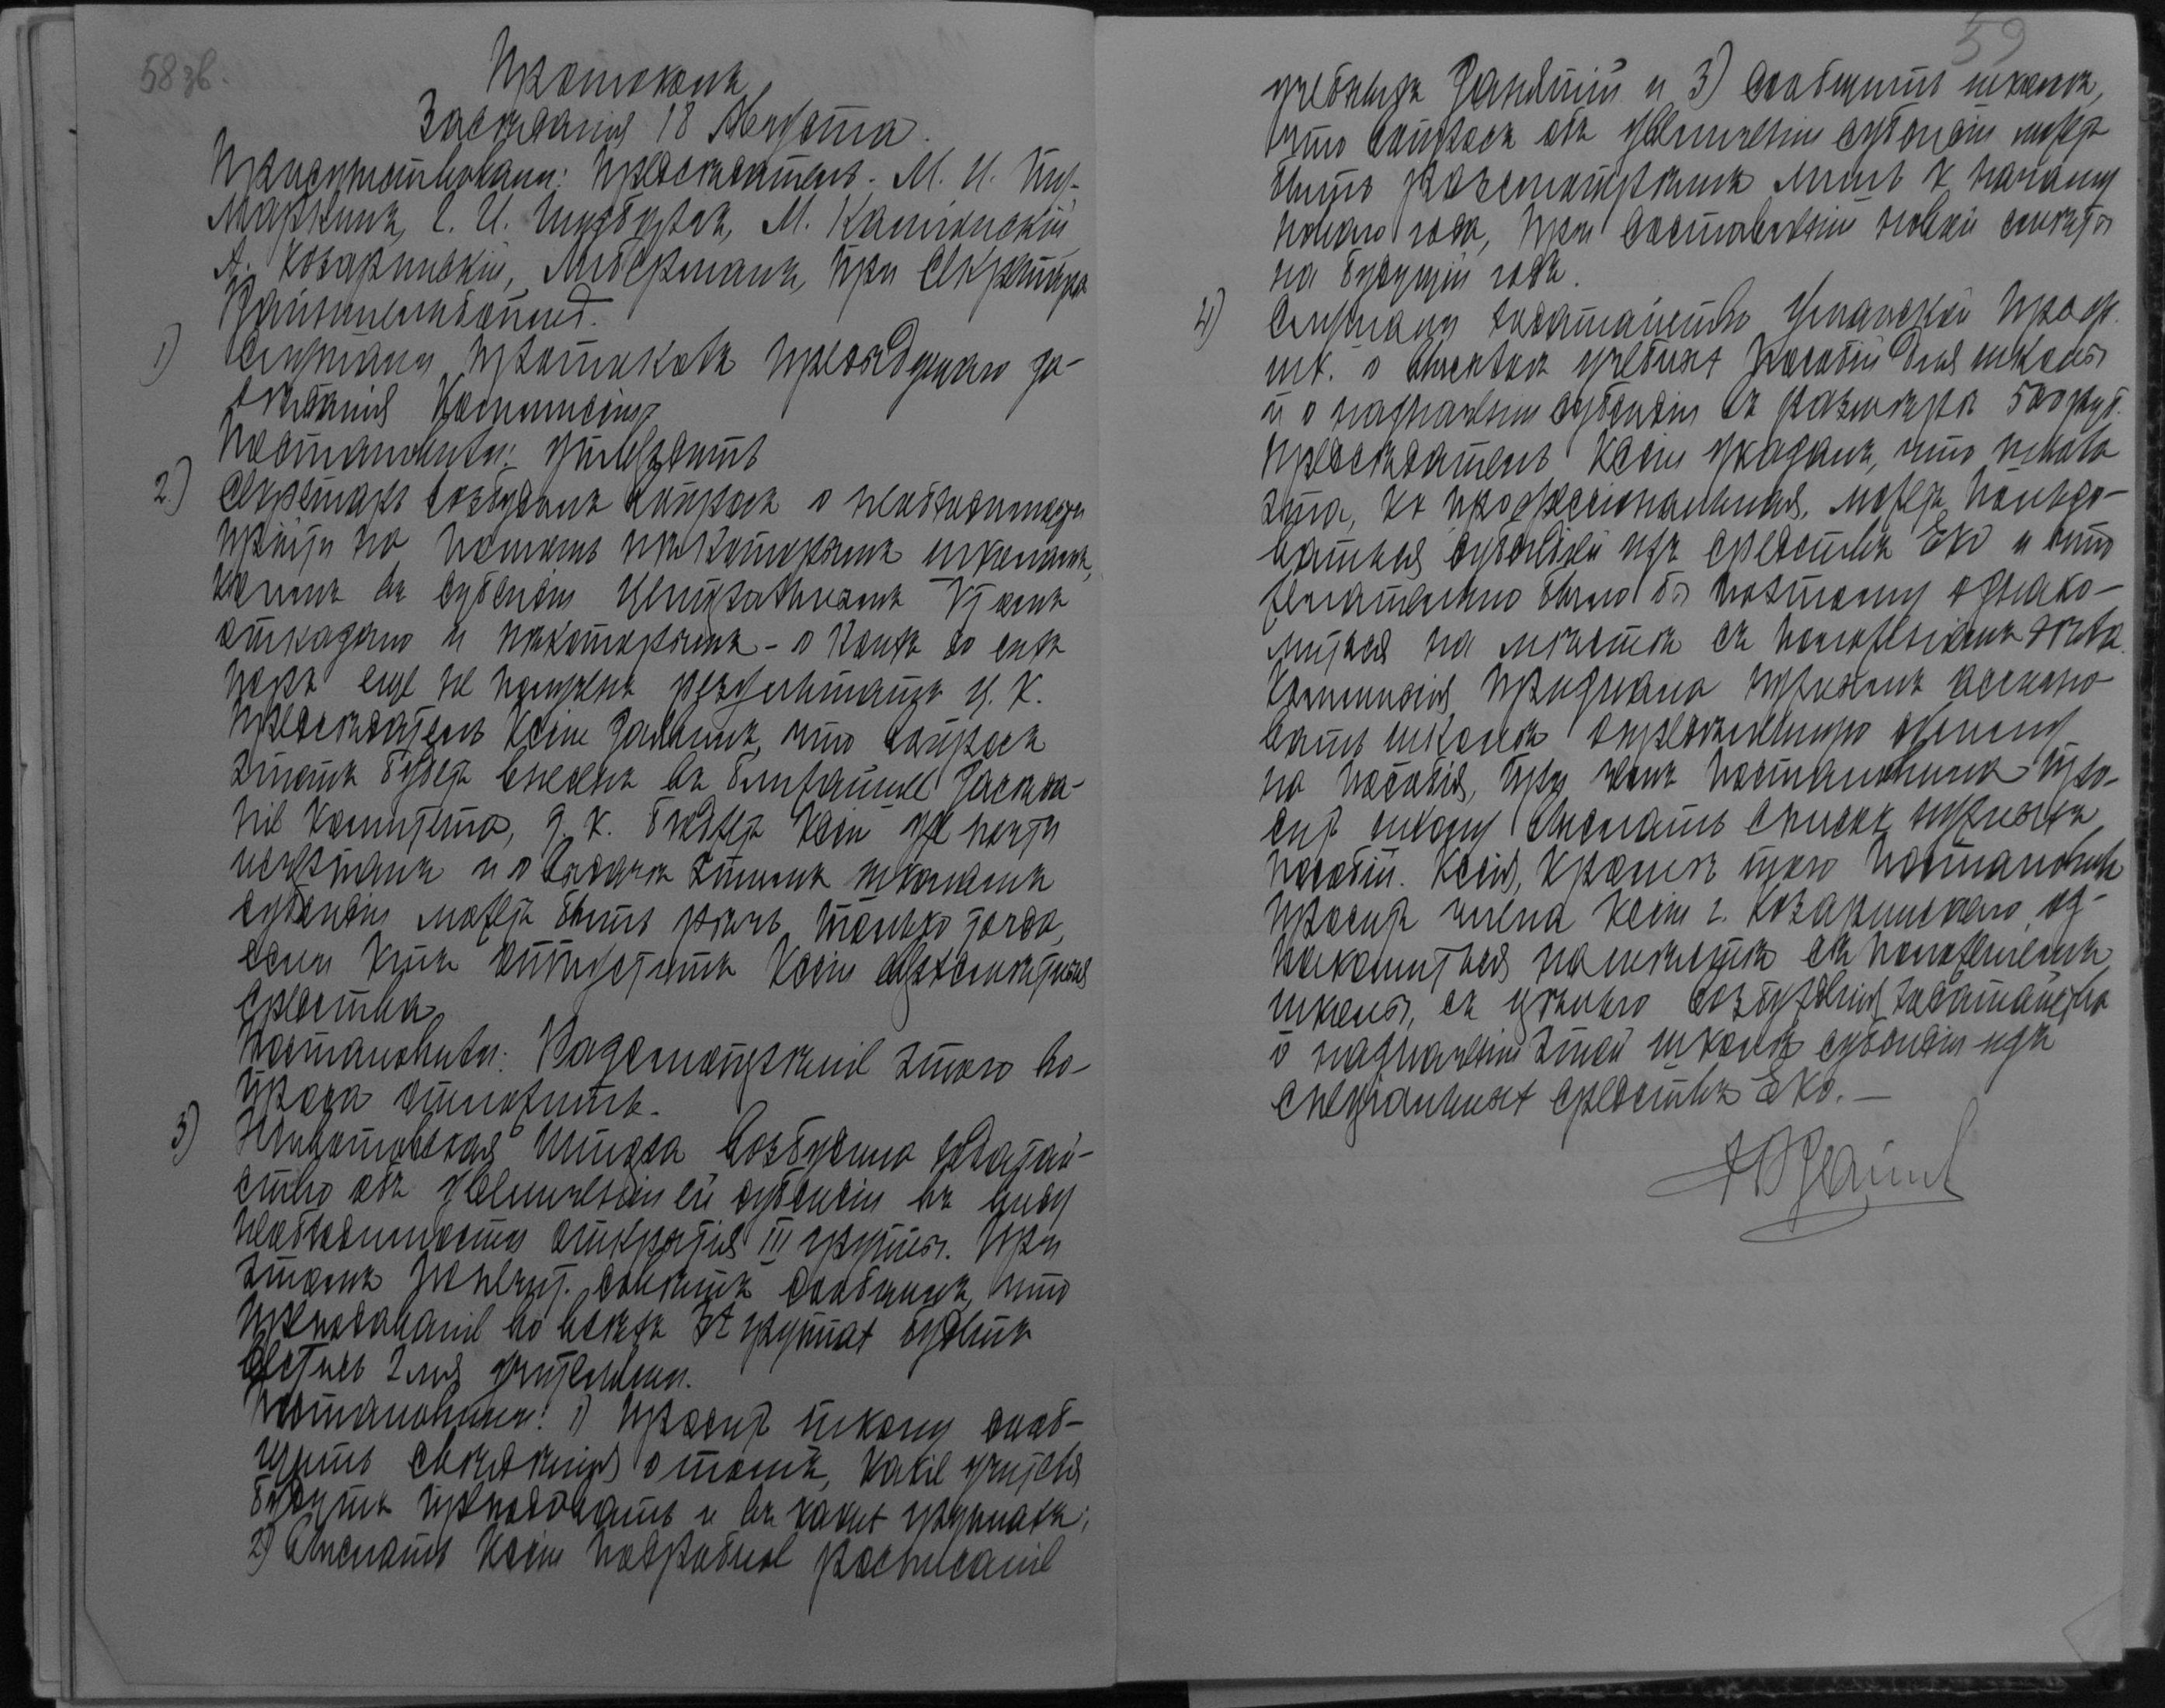 58 зв.
Протоколъ
Засѣданія 18 Августа.
Присутствовали: Предсѣдатель - М. И.
М. Каміонскій,
А. Козаринскій, Либерманъ, при Секретарѣ
1) Слушали протоколъ предыдущаго за-
сѣданія Коммиссіи
Постановили: утвердить
2) Секретарь возбудилъ вопросъ о необходимости
прійти на помощь нѣкоторымъ школамъ,
коимъ въ субсидіи Центральнымъ К-томъ
отказано и нѣкоторымъ - о коихъ до сихъ
поръ еще не полученъ результатъ Ц. К.
Предсѣдатель Ксіи заявилъ, что вопросъ
этотъ будетъ внесенъ въ ближайшее засѣда-
ніе Комитета, т. к. бюджетъ Ксіи уже почти
исчерпанъ и о выдачѣ этимъ школамъ
субсидіи можетъ быть рѣчь только тогда,
если К-тъ отпуститъ Ксіи сверхсмѣтныя
средства.
Постановили: Разсмотрѣніе этого во-
проса отложить.
3) школа возбудила ходатай-
ство объ увеличеніи ей субсидіи въ виду
необходимости открытія III группы. При
этомъ попечит. совѣтъ сообщилъ, что
преподаваніе во всѣхъ 3х группахъ будетъ
вестись 2мя учителями.
Постановили: 1) Просить школу сооб-
щить свѣдѣнія о томъ, какіе учителя
будутъ преподавать и въ какихъ группахъ;
2) Выслать Ксіи подробное росписаніе
59
учебныхъ занятій и 3) сообщить школѣ,
что вопросъ объ увеличеніи субсидіи можетъ
быть разсмотрѣнъ лишь к началу
новаго года, при составленіи новой смѣты
на будущій годъ.
4) Слушали ходатайство Уманской проф.
шк. о высылкѣ учебныхъ пособій для школы
и о назначеніи субсидіи въ размѣрѣ 500 руб.
Предсѣдатель Ксіи указалъ, что школа
эта, какъ профессіональная, можетъ пользо-
ваться субсидіей изъ средствъ ЕКО и что
желательно было бы поэтому ознако-
миться на мѣстѣ съ положеніемъ дѣла.
Коммиссія признала нужнымъ ассигно-
вать школѣ опредѣленную сумму
на пособія, при чемъ постановила про-
сить школу выслать списокъ нужныхъ
пособій. Ксія, кромѣ того постановила
просить члена Ксіи г. Козаринскаго оз-
накомиться на мѣстѣ съ положеніемъ
школы, съ цѣлью возбужденія ходатайства
о назначеніи этой школѣ субсидіи изъ
спеціальныхъ средствъ ЕКО. —